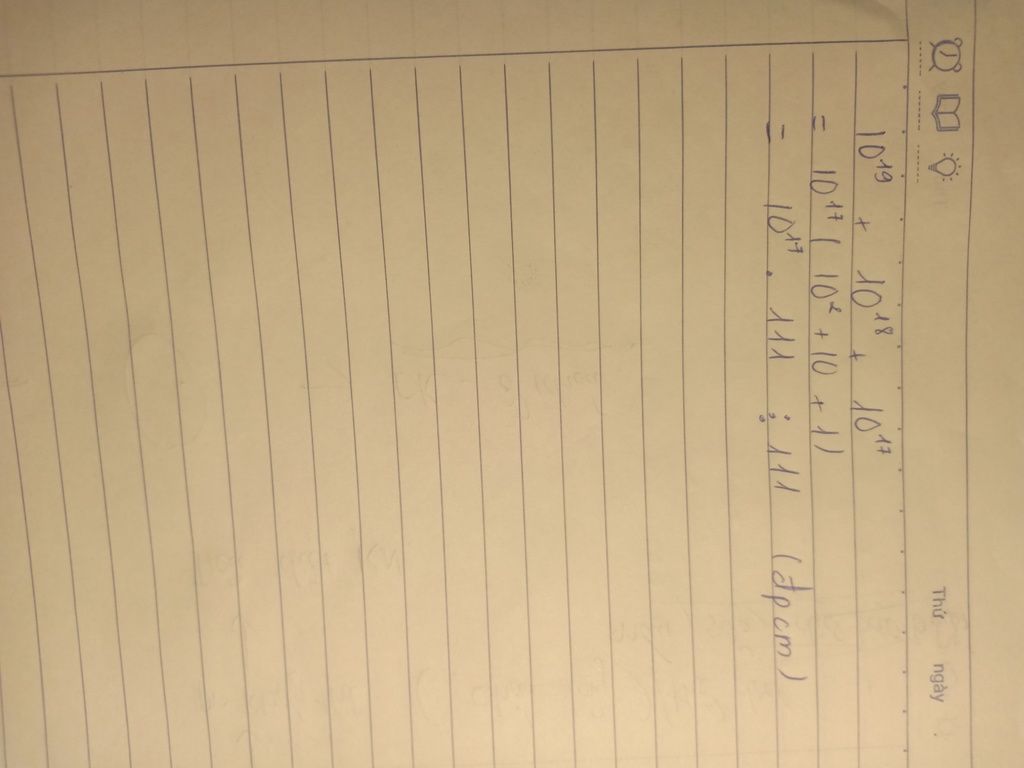 Thứ ngày
10¹⁹ + 10¹⁸ + 10¹⁷
= 10¹⁷ ( 10² + 10 + 1)
= 10¹⁷ . 111 ⋮ 111 (đpcm)